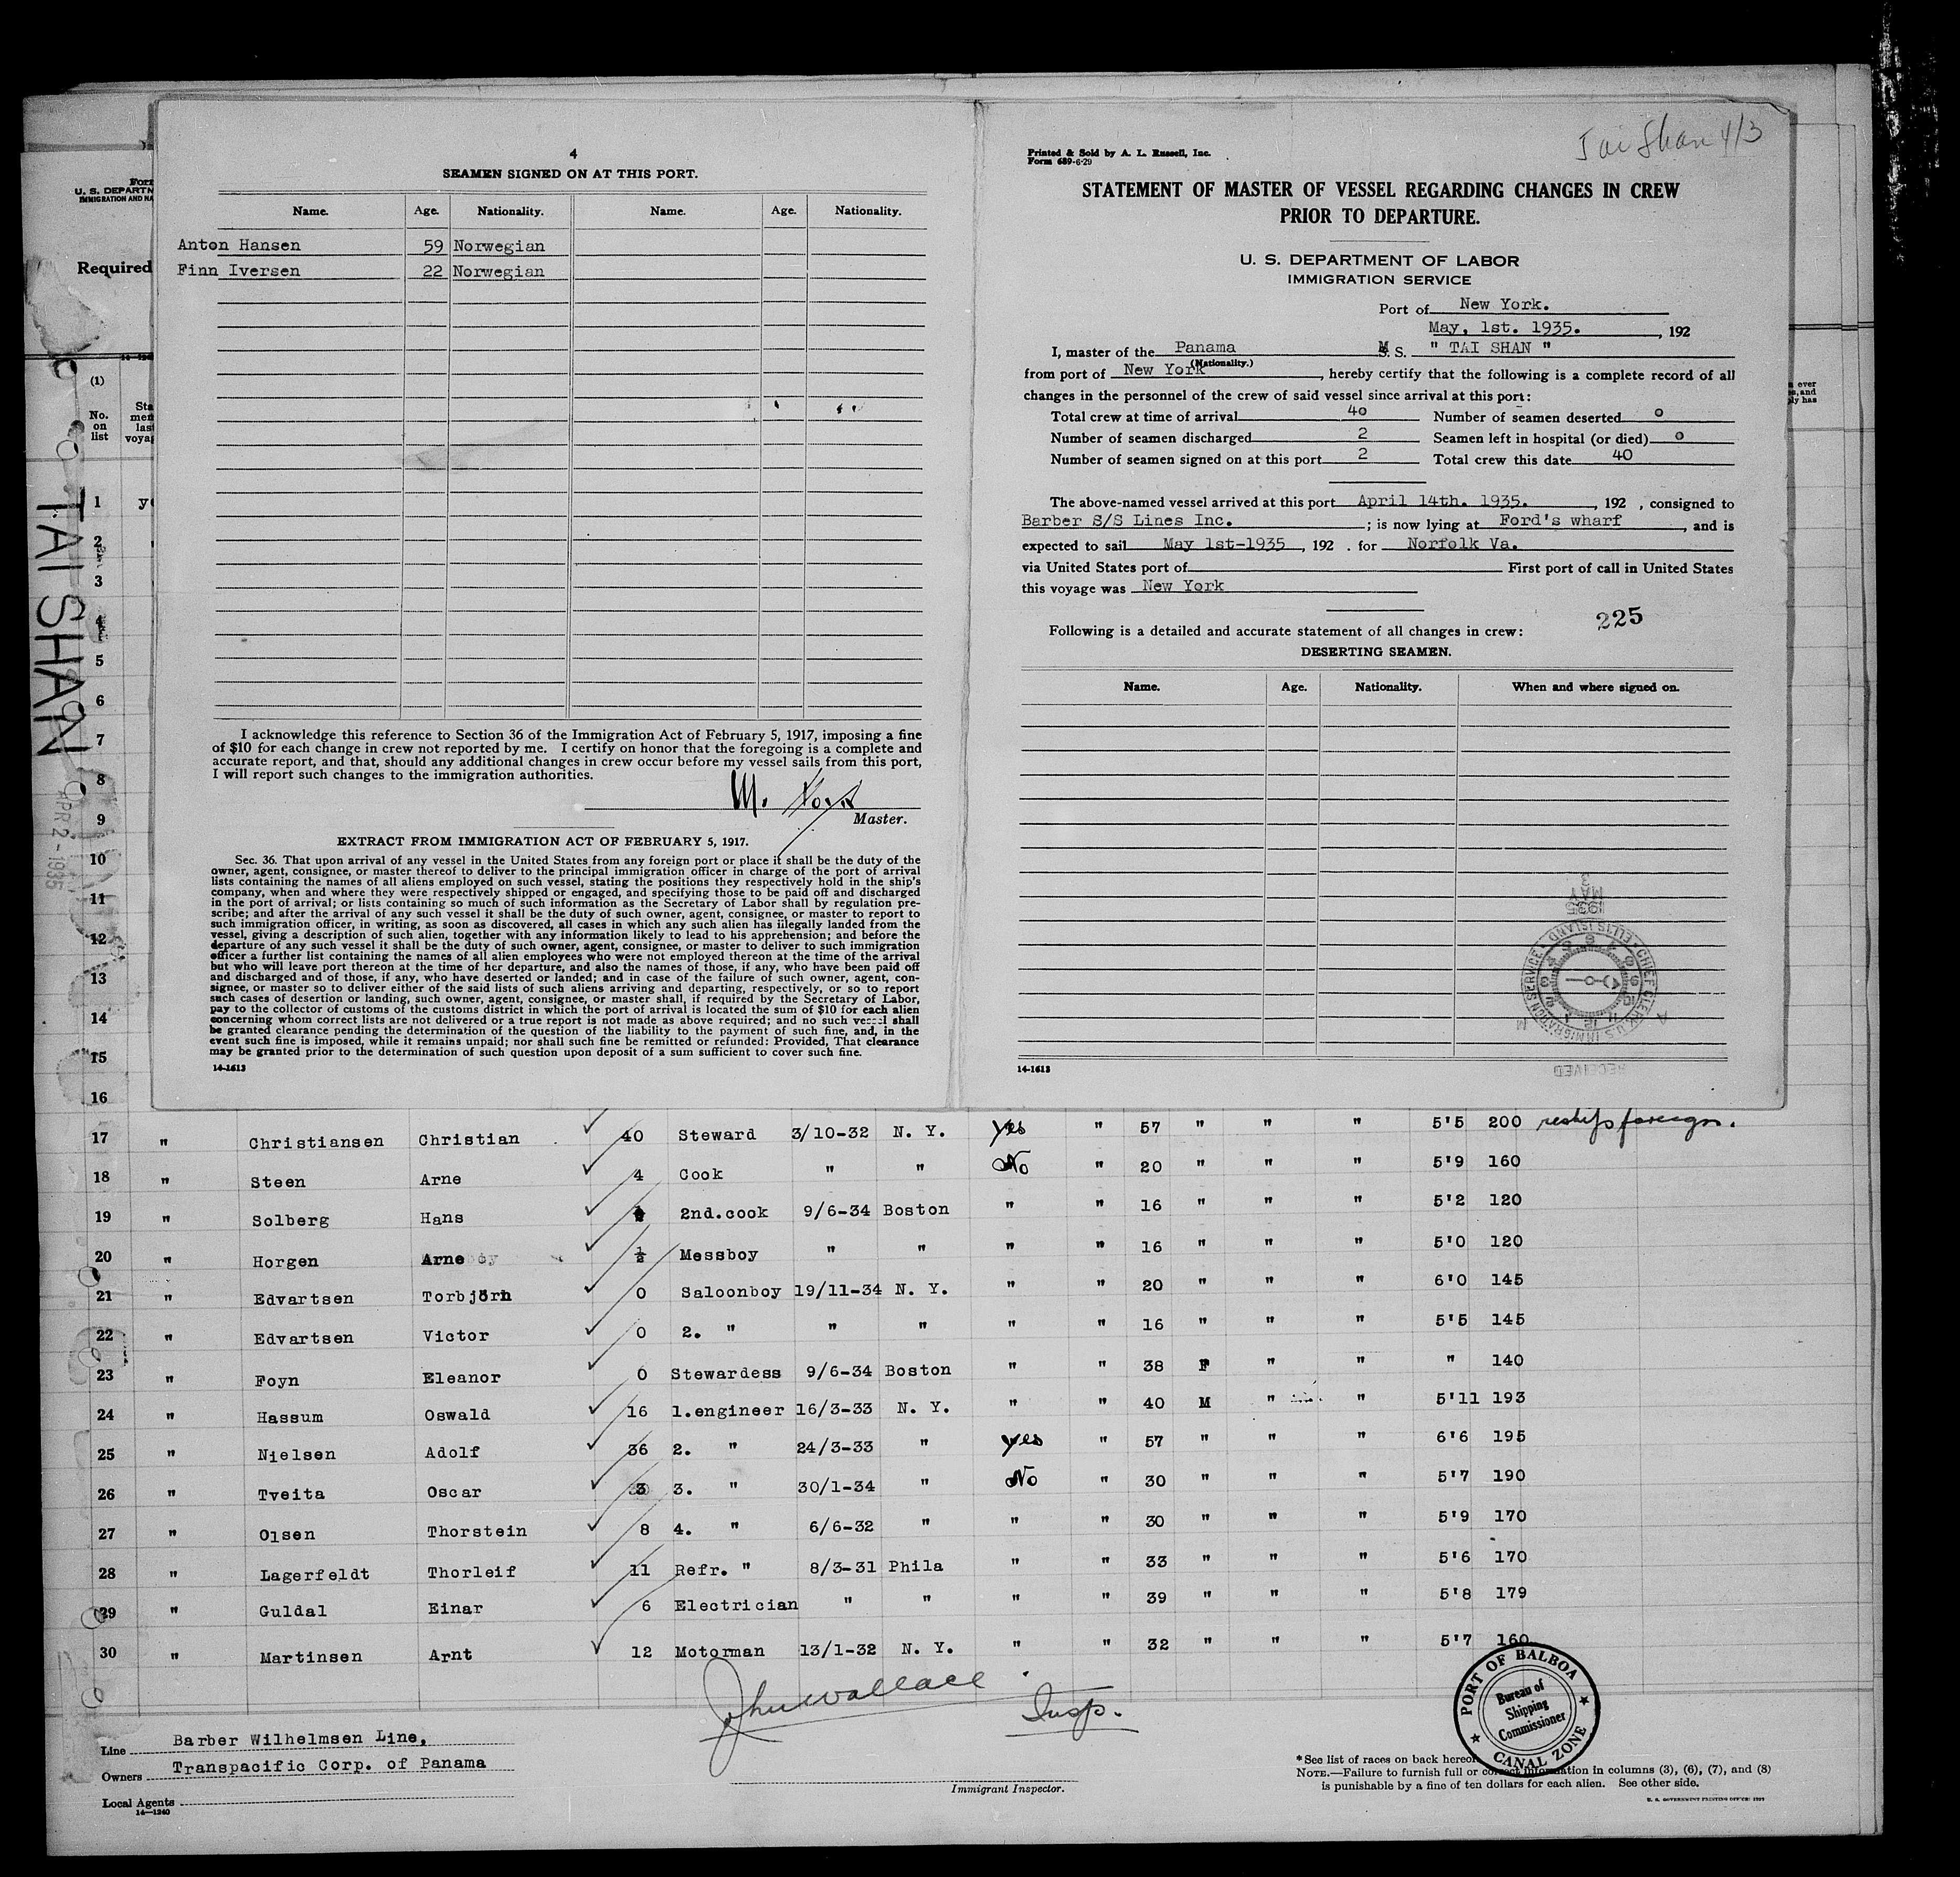 Tai Shan 4/3
4
SEAMEN SIGNED ON AT THIS PORT.
Name. Age. Nationality. Name. Age. Nationality.
Anton Hansen 59 Norwegian
Finn Iversen 22 Norwegian
I acknowledge this reference to Section 36 of the Immigration Act of February 5, 1917, imposing a fine
of $10 for each change in crew not reported by me. I certify on honor that the foregoing is a complete and
accurate report, and that, should any additional changes in crew occur before my vessel sails from this port,
I will report such changes to the immigration authorities.
Master.
EXTRACT FROM IMMIGRATION ACT OF FEBRUARY 5, 1917.
Sec. 36. That upon arrival of any vessel in the United States from any foreign port or place it shall be the duty of the
owner, agent, consignee, or master thereof to deliver to the principal immigration officer in charge of the port of arrival
lists containing the names of all aliens employed on such vessel, stating the positions they respectively hold in the ship's
company, when and where they were respectively shipped or engaged, and specifying those to be paid off and discharged
in the port of arrival; or lists containing so much of such information as the Secretary of Labor shall by regulation pre-
scribe; and after the arrival of any such vessel it shall be the duty of such owner, agent, consignee, or master to report to
such immigration officer, in writing, as soon as discovered, all cases in which any such alien has illegally landed from the
vessel, giving a description of such alien, together with any information likely to lead to his apprehension; and before the
departure of any such vessel it shall be the duty of such owner, agent, consignee, or master to deliver to such immigration
officer a further list containing the names of all alien employees who were not employed thereon at the time of the arrival
but who will leave port thereon at the time of her departure, and also the names of those, if any, who have been paid off
and discharged and of those, if any, who have deserted or landed; and in case of the failure of such owner, agent, con-
signee, or master so to deliver either of the said lists of such aliens arriving and departing, respectively, or so to report
such cases of desertion or landing, such owner, agent, consignee, or master shall, if required by the Secretary of Labor,
pay to the collector of customs of the customs district in which the port of arrival is located the sum of $10 for each alien
concerning whom correct lists are not delivered or a true report is not made as above required; and no such vessel shall
be granted clearance pending the determination of the question of the liability to the payment of such fine, and, in the
event such fine is imposed, while it remains unpaid; nor shall such fine be remitted or refunded: Provided, That clearance
may be granted prior to the determination of such question upon deposit of a sum sufficient to cover such fine.
14-1613
Printed & Sold by A. L. Russell, Inc.
Form 689-6-29
STATEMENT OF MASTER OF VESSEL REGARDING CHANGES IN CREW
PRIOR TO DEPARTURE.
U. S. DEPARTMENT OF LABOR
IMMIGRATION SERVICE
Port of New York.
May, 1st. 1935. , 192
I, master of the Panama M S. S. " TAI SHAN "
(Nationality.)
from port of New York , hereby certify that the following is a complete record of all
changes in the personnel of the crew of said vessel since arrival at this port:
Total crew at time of arrival 40 Number of seamen deserted 0
Number of seamen discharged 2 Seamen left in hospital (or died) 0
Number of seamen signed on at this port 2 Total crew this date 40
The above-named vessel arrived at this port April 14th. 1935. , 192 , consigned to
Barber S/S Lines Inc. ; is now lying at Ford's wharf , and is
expected to sail May 1st-1935 , 192 . for Norfolk Va.
via United States port of First port of call in United States
this voyage was New York
225
Following is a detailed and accurate statement of all changes in crew:
DESERTING SEAMEN.
Name. Age. Nationality. When and where signed on.
1935
MAY
3
CHIEF CLERK U. S. IMMIGRATION SERVICE ELLIS ISLAND
RECEIVED
14-1613
Form
U. S. DEPARTN
IMMIGRATION AND NA
Required
TAI SHAN
APR 2 - 1935
(1)
No.
on
list
Sta
men
las
voyag
1
2
3
4
5
6
7
8
9
10
11
12
13
14
15
16
17 " Christiansen Christian 40 Steward 3/10-32 N. Y. yes " 57 " " " 5'5 200
18 " Steen Arne 4 Cook " " No " 20 " " " 5'9 160
19 " Solberg Hans 2nd.cook 9/6-34 Boston " " 16 " " " 5'2 120
20 " Horgen Arne ½ Messboy " " " " 16 " " " 5'0 120
21 " Edvartsen Torbjörn 0 Saloonboy 19/11-34 N. Y. " " 20 " " " 6'0 145
22 " Edvartsen Victor 0 2. " " " " " 16 " " " 5'5 145
23 " Foyn Eleanor 0 Stewardess 9/6-34 Boston " " 38 F " " " 140
24 " Hassum Oswald 16 1.engineer 16/3-33 N. Y. " " 40 M " " 5'11 193
25 " Nielsen Adolf 36 2. " 24/3-33 " yes " 57 " " " 6'6 195
26 " Tveita Oscar 3 3. " 30/1-34 " No " 30 " " " 5'7 190
27 " Olsen Thorstein 8 4. " 6/6-32 " " " 30 " " " 5'9 170
28 " Lagerfeldt Thorleif 11 Refr. " 8/3-31 Phila " " 33 " " " 5'6 170
29 " Guldal Einar 6 Electrician " " " " 39 " " " 5'8 179
30 " Martinsen Arnt 12 Motorman 13/1-32 N. Y. " " 32 " " " 5'7 160
John Wallace Insp.
PORT OF BALBOA
Bureau of
Shipping
Commissioner
CANAL ZONE
Line Barber Wilhelmsen Line,
Owners Transpacific Corp. of Panama
Local Agents
14-1240
Immigrant Inspector.
*See list of races on back hereof
NOTE.—Failure to furnish full or correct information in columns (3), (6), (7), and (8)
is punishable by a fine of ten dollars for each alien. See other side.
U. S. GOVERNMENT PRINTING OFFICE